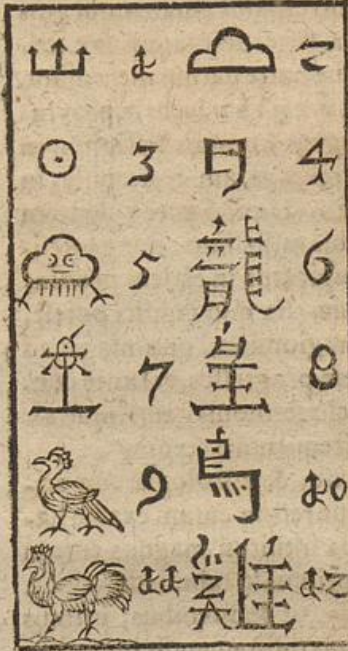 1 2
3 日 4
5 龍 6
7 皇 8
9 鳥 10
11 雞 12